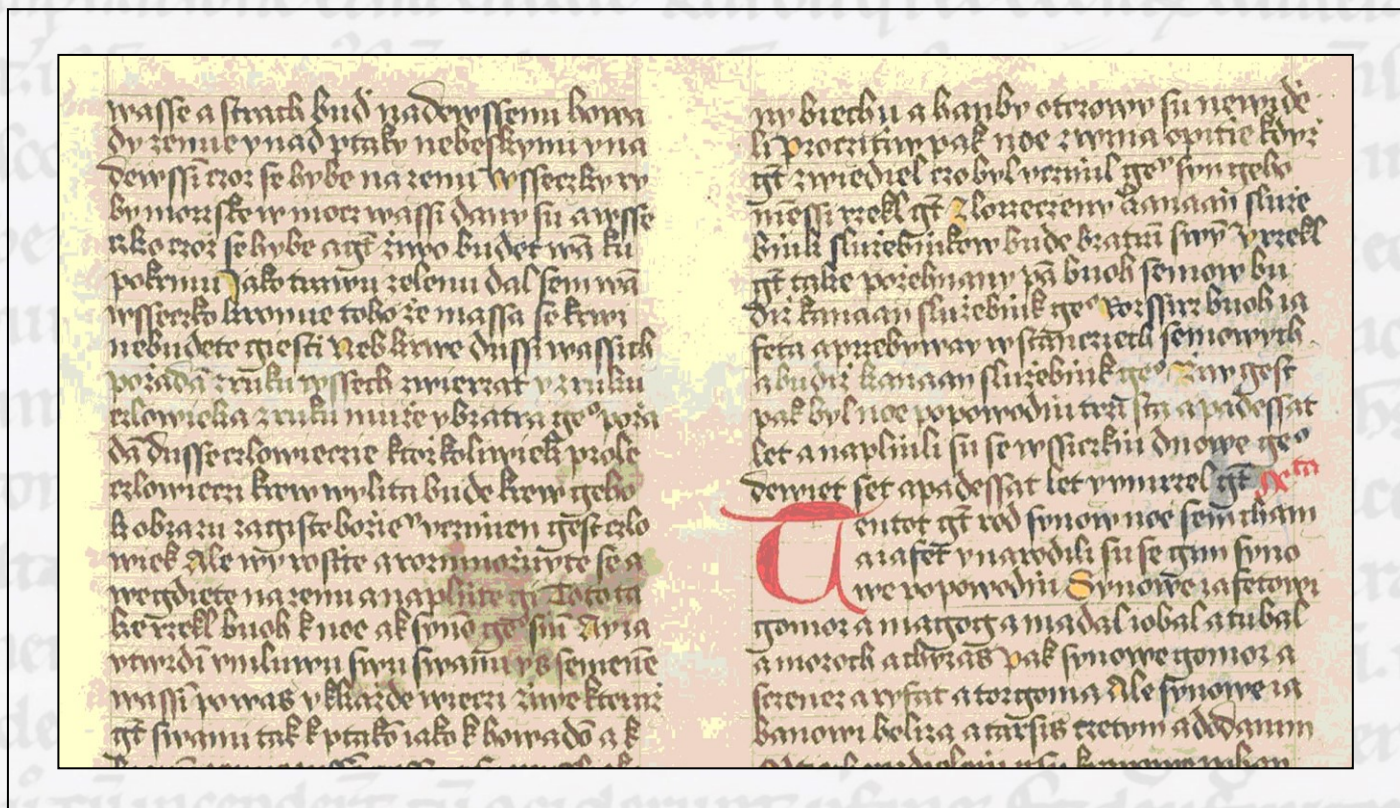 wasse a strach bud nadewssemi howa
dy zemie y nad ptaky nebeskymi y na
dewssi czoz se hybe na zemi wsseczky ry
by morzske w mocz wassi dany su a wsse
czko czoz se hybe a gt ziwo budet wā ku
pokrmu Jako trawu zelenu dal sem wā
wsseczko kromie toho ze massa se krwi
nebudete giesti Neb krwe dussi wassich
pozadā z ruku wssech zwierzat y z ruku
czlowieka z ruku muze y bratra geº poza
dā dusse czlowieczie ktozkoliwiek prole
czlowieczi krew wylita bude krew geho
k obrazu zagiste bozieº vczinien gest czlo
wiek Ale wy rostte a rozmnozuyte se a
wegdiete na zemi a naplnte gi Toto ta
ke rzekl buoh k noe a k synō geº s nī Ay ia
vtwrdi vmluwu swu s wami y s semenē
wassi po was y k kazde wieczi ziwe kteraz
gt s wami tak k ptakō iako k howadō a k
ny biechu a hanby otczowy su newide
li procitiw pak noe z wina opitie kdyz
gt zwiediel czo byl vczinil geº syn geho
mensi rzekl gt Zlorzeczeny Canaan sluze
bnik sluzebnikow bude bratri swy Y rzekl
gt take pozehnany pā buoh semow bu
diz kanaan sluzebnik geº Rozssirz buoh ia
feta a przebyway w stanczech semowych
a budiz kanaan sluzebnik geº Ziw gest
pak byl noe po powodni trzi sta a padessat
let a naplnili su se wssiczkni dnowe geº
dewiet set a padessat let y vmrzel gt xta
Tentot gt rod synow noe sem cham
a iafet y narodili su se gim syno
we po powodni Synowe iafetowi
gomor a magog a madal iobal a tubal
a moroch a thyras Pak synowe gomor a
scenez a ryfat a torgoma Ale synowe ia
banowi heliza a tarsis cretym a dodanim